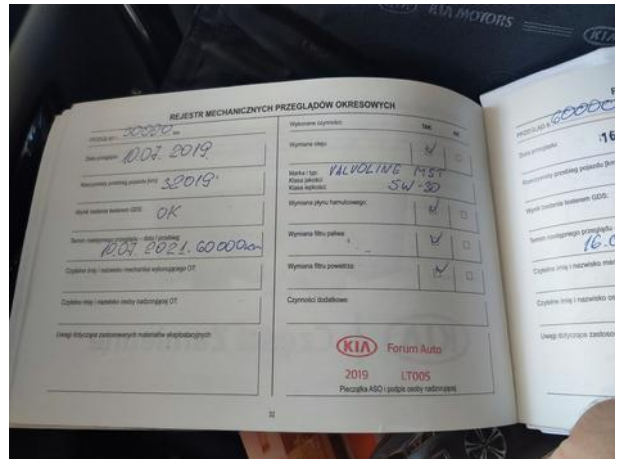 KIA MOTORS
KIA
REJESTR MECHANICZNYCH PRZEGLĄDÓW OKRESOWYCH
Data przeglądu: 10.07.2019
Rzeczywisty przebieg pojazdu [km]: 32019
Wynik badania testerem GDS: OK
Termin następnego przeglądu - data / przebieg:
10.07.2021. 60 000km
Czytelne imię i nazwisko mechanika wykonującego OT:
Czytelne imię i nazwisko osoby nadzorującej OT:
Uwagi dotyczące zastosowanych materiałów eksploatacyjnych:
Wykonane czynności: tak nie
Wymiana oleju:
Marka i typ: VALVOLINE MST
Klasa jakości:
Klasa lepkości: 5W-30
Wymiana płynu hamulcowego:
Wymiana filtru paliwa:
Wymiana filtru powietrza:
Czynności dodatkowe:
KIA Forum Auto
2019 LT005
Pieczątka ASO i podpis osoby nadzorującej
32
60000
Data przeglądu: 16
Rzeczywisty przebieg pojazdu [km
Wynik badania testerem GDS:
Termin następnego przeglądu
16.0
Czytelne imię i nazwisko
Czytelne imię i nazwisko
Uwagi dotyczące